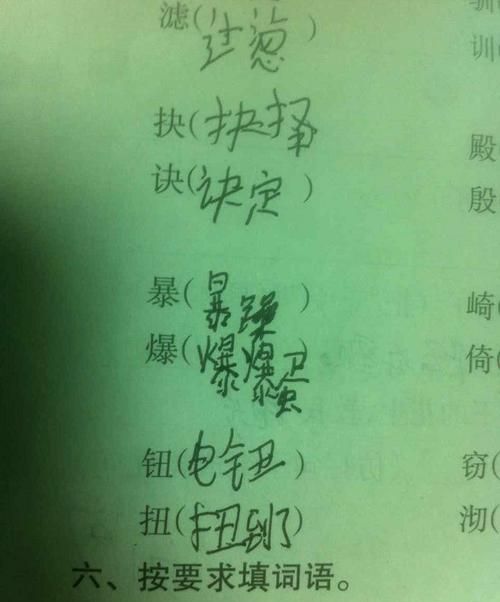 滤(过滤)
驯
训
抉(抉择
诀(诀定)
殿
殷
暴(暴躁)
崎(
爆(爆爆)
倚(
钮(电钮)
窃(
扭(扭到了)
沏(
六、按要求填词语。